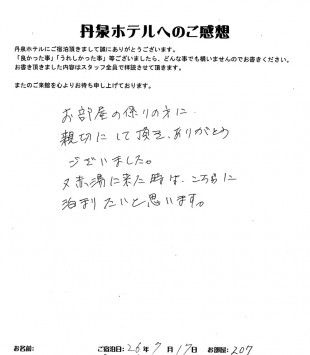 丹泉ホテルへのご感想
丹泉ホテルにご宿泊頂きまして誠にありがとうございます。
「良かった事」「うれしかった事」等ございましたら、どんな事でも構いませんのでお書きください。
お書き頂きました内容はスタッフ全員で拝読させて頂きます。
またのご来館を心よりお待ち申し上げております。
お部屋の係りの方に、
親切にして頂き、ありがとう
ございました。
又赤湯に来た時は、こちらに
泊まりたいと思います。
お名前: ご宿泊日: 26年 7月 17日 お部屋: 207